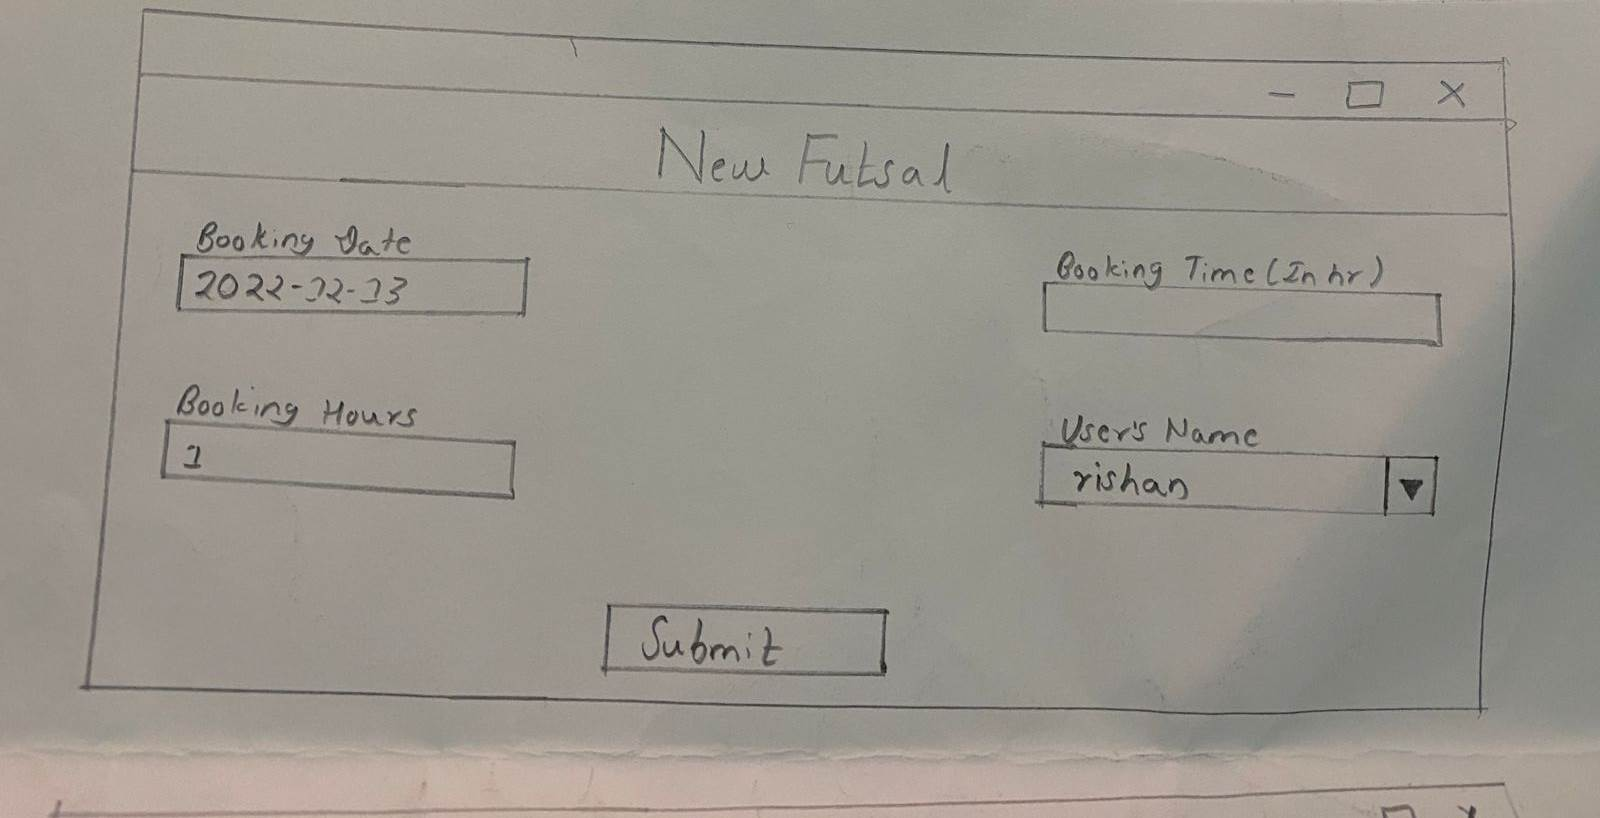 New Futsal
Booking Date
2022-12-13
Booking Time (In hr)
Booking Hours
1
User's Name
rishan
Submit